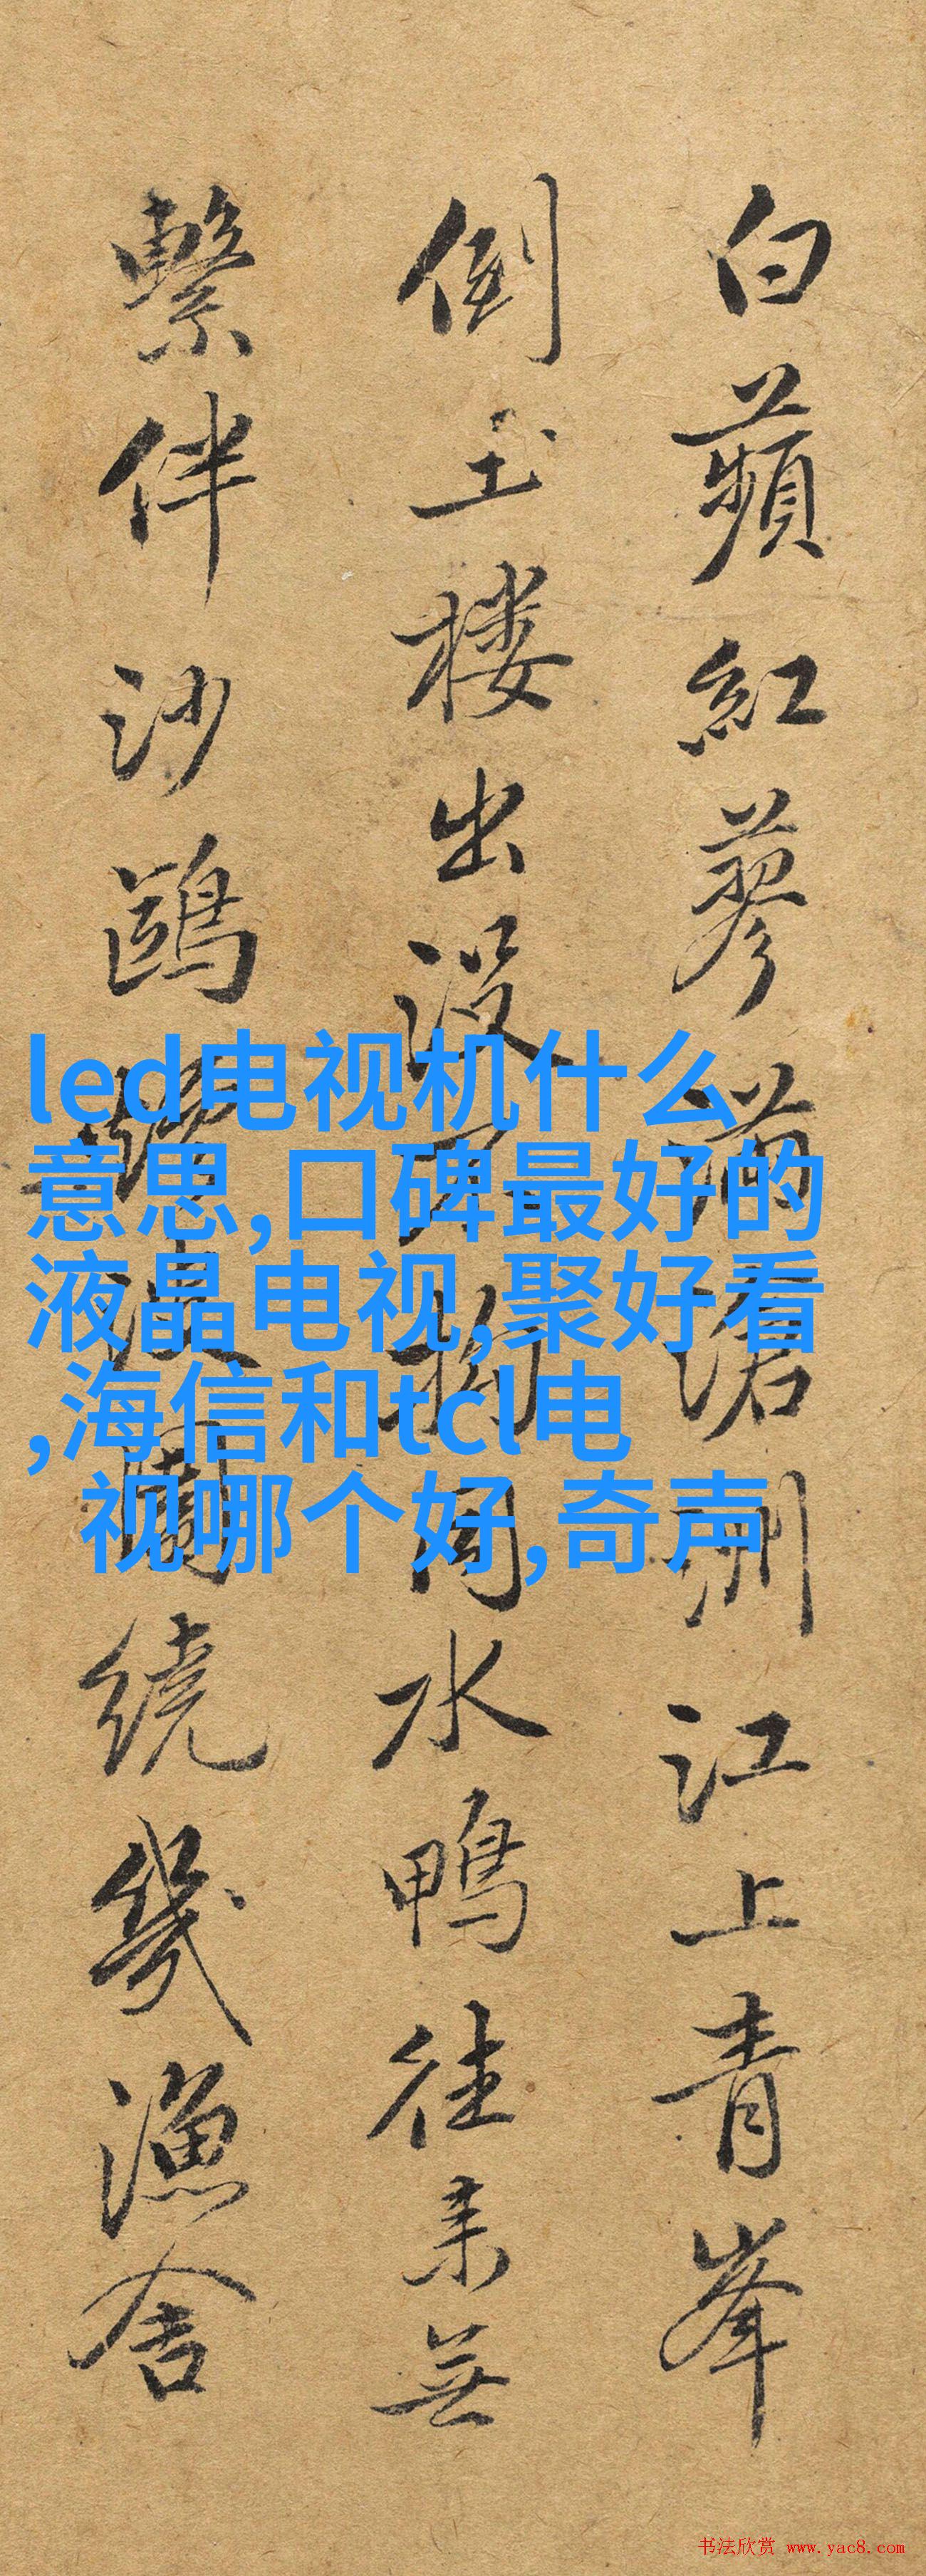 白蘋紅蓼滿滄洲江上青峯
倒玉楼出没
水鴨往来無
繫伴沙鷗
繞幾漁舍
led电视机什么
意思,口碑最好的
液晶电视,聚好看
,海信和tcl电
视哪个好,奇声
书法欣赏 www.yac8.com